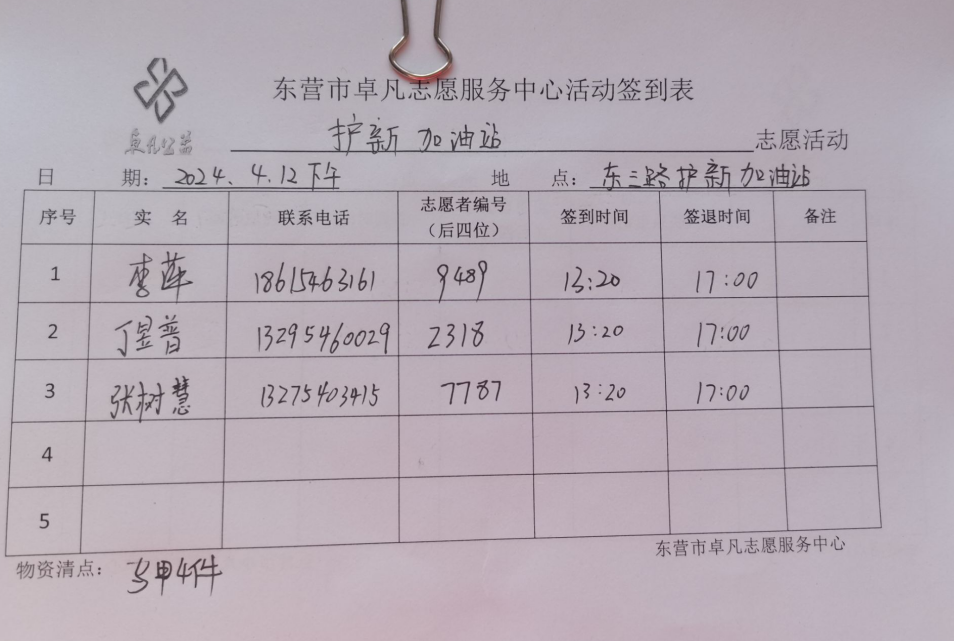 东营市卓凡志愿服务中心活动签到表
卓凡公益
护新加油站 志愿活动
日期：2024.4.12下午 地点：东三路护新加油站
序号 实名 联系电话 志愿者编号（后四位） 签到时间 签退时间 备注
1 李萍 18615463161 9489 13:20 17:00
2 丁昱普 13295460029 2318 13:20 17:00
3 张树慧 13275403415 7787 13:20 17:00
4
5
东营市卓凡志愿服务中心
物资清点：马甲4件